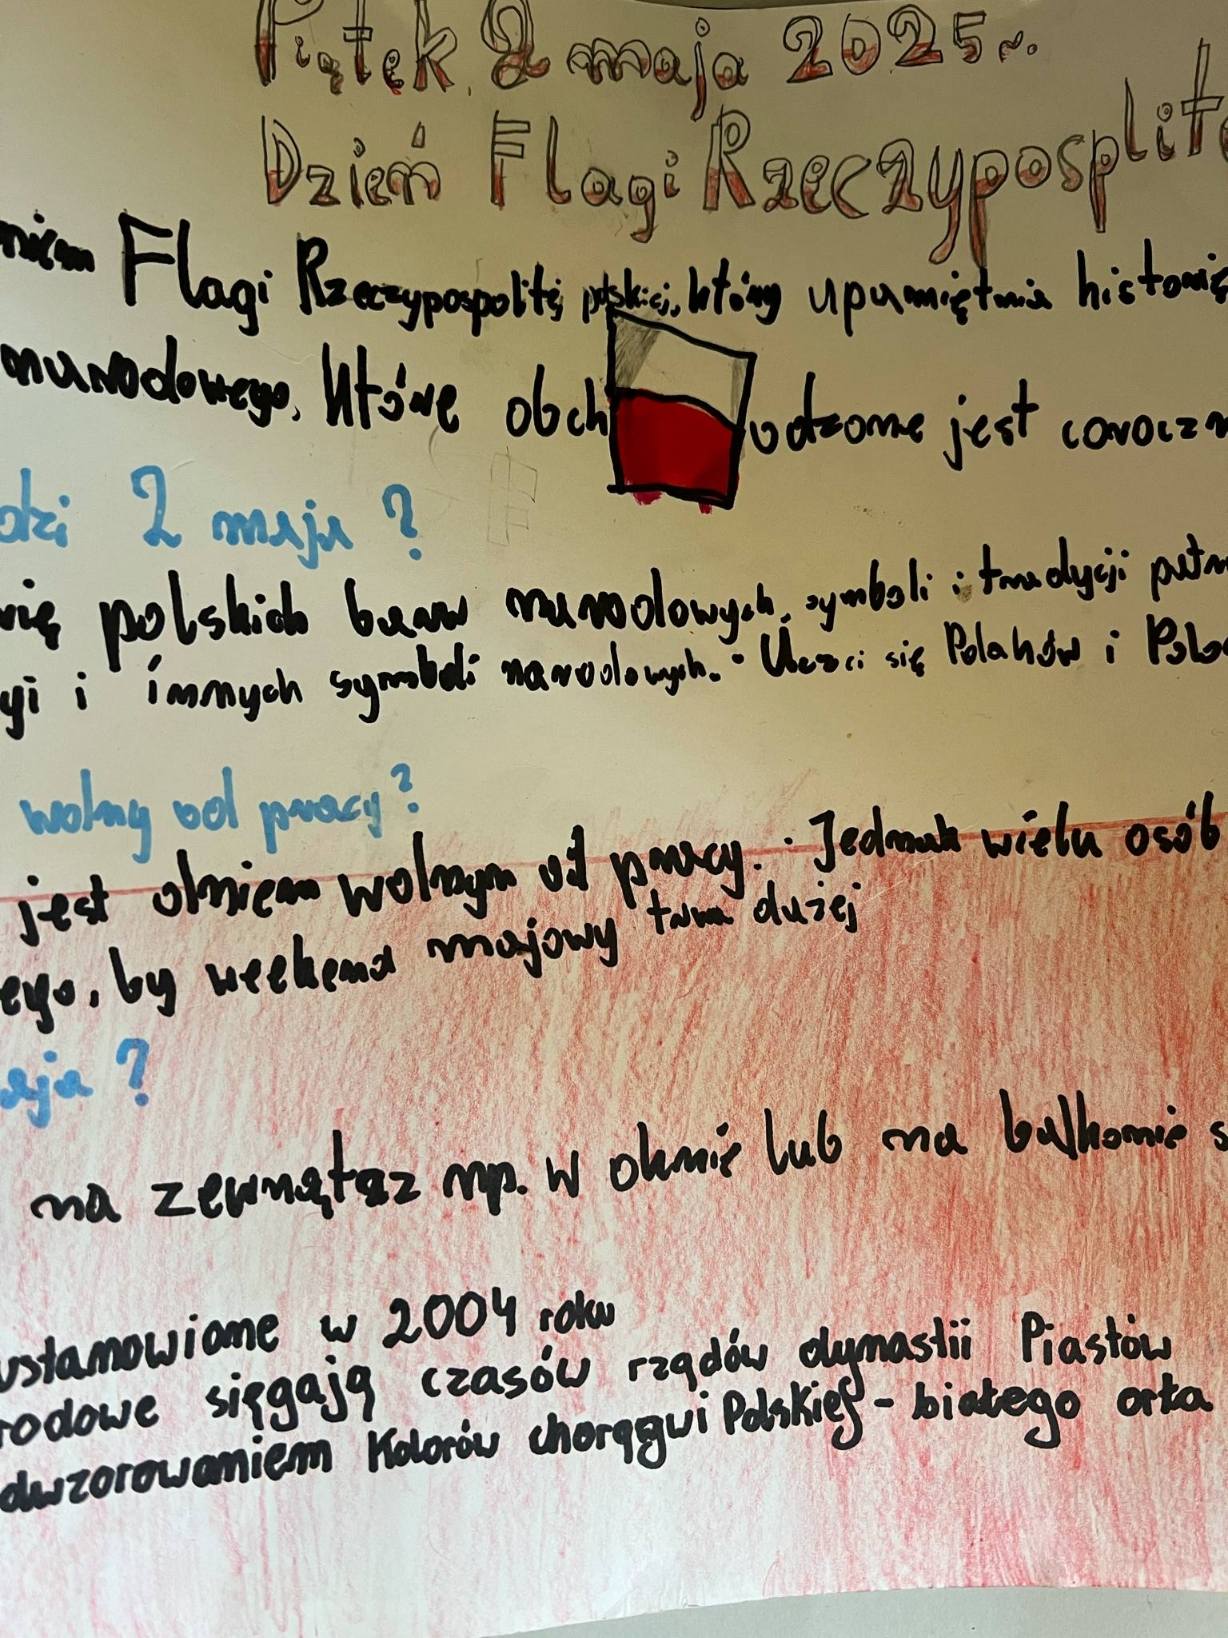 Piątek, 2 maja 2025 r.
Dzień Flagi Rzeczypospolite
niem Flagi Rzeczypospolitej polskiej, który upamiętnia historię
narodowego, które obchodzone jest coroczn
dzi 2 maja?
ię polskich barw narodowych, symboli i tradycji patr
gi i innych symboli narodowych. Uczci się Polaków i Polo
wolny od pracy?
jest dniem wolnym od pracy. Jednak wielu osób
ego, by weekend majowy trwa dużej
aja?
na zewnątrz np. w oknie lub na balkonie s
ustanowione w 2004 roku
rodowe sięgają czasów rządów dynastii Piastów
dwzorowaniem kolorów chorągwi Polskiej - białego orła